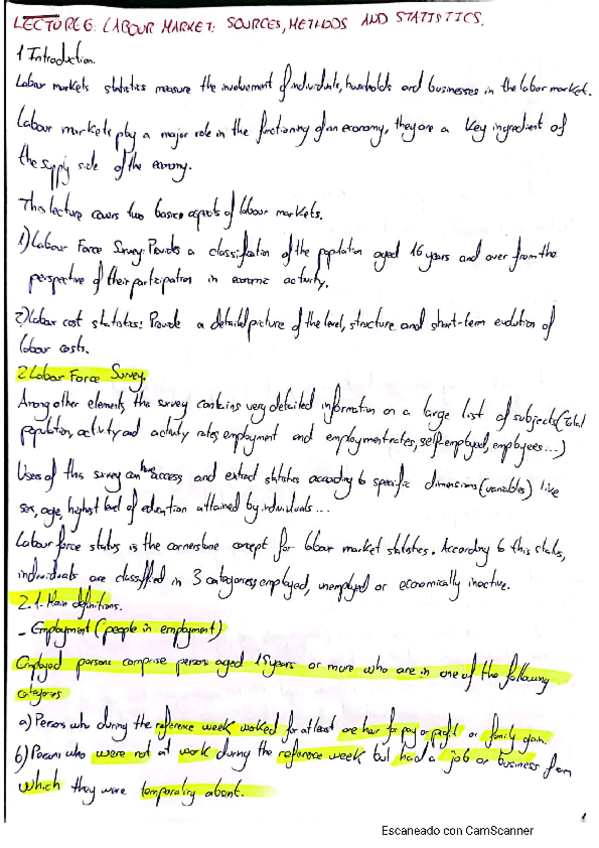 LECTURE 6: LABOUR MARKET: SOURCES, METHODS AND STATISTICS.
1 Introduction.
Labour markets statistics measure the involvement of individuals, households and businesses in the labor market.
Labour markets play a major role in the functioning of an economy, they are a key ingredient of
the supply side of the economy.
This lecture covers two basics aspects of labour markets.
1) Labour Force Survey: Provides a classification of the population aged 16 years and over from the
perspective of their participation in economic activity.
2) Labour cost statistics: Provide a detailed picture of the level, structure and short-term evolution of
labour costs.
2. Labour Force Survey.
Among other elements, this survey contains very detailed information on a large list of subjects (total
population, activity and activity rates, employment and employment rates, self-employed, employees...)
Users of this survey can access and extract statistics according to specific dimensions (variables) like
sex, age, highest level of education attained by individuals...
Labour force status is the cornerstone concept for labour market statistics. According to this status,
individuals are classified in 3 categories: employed, unemployed or economically inactive.
2.1. Main definitions.
- Employment (people in employment)
Employed persons comprise persons aged 15 years or more who are in one of the following
categories
a) Persons who during the reference week worked for at least one hour for pay or profit or family gain.
b) Persons who were not at work during the reference week but had a job or business from
which they were temporarily absent.
1
Escaneado con CamScanner